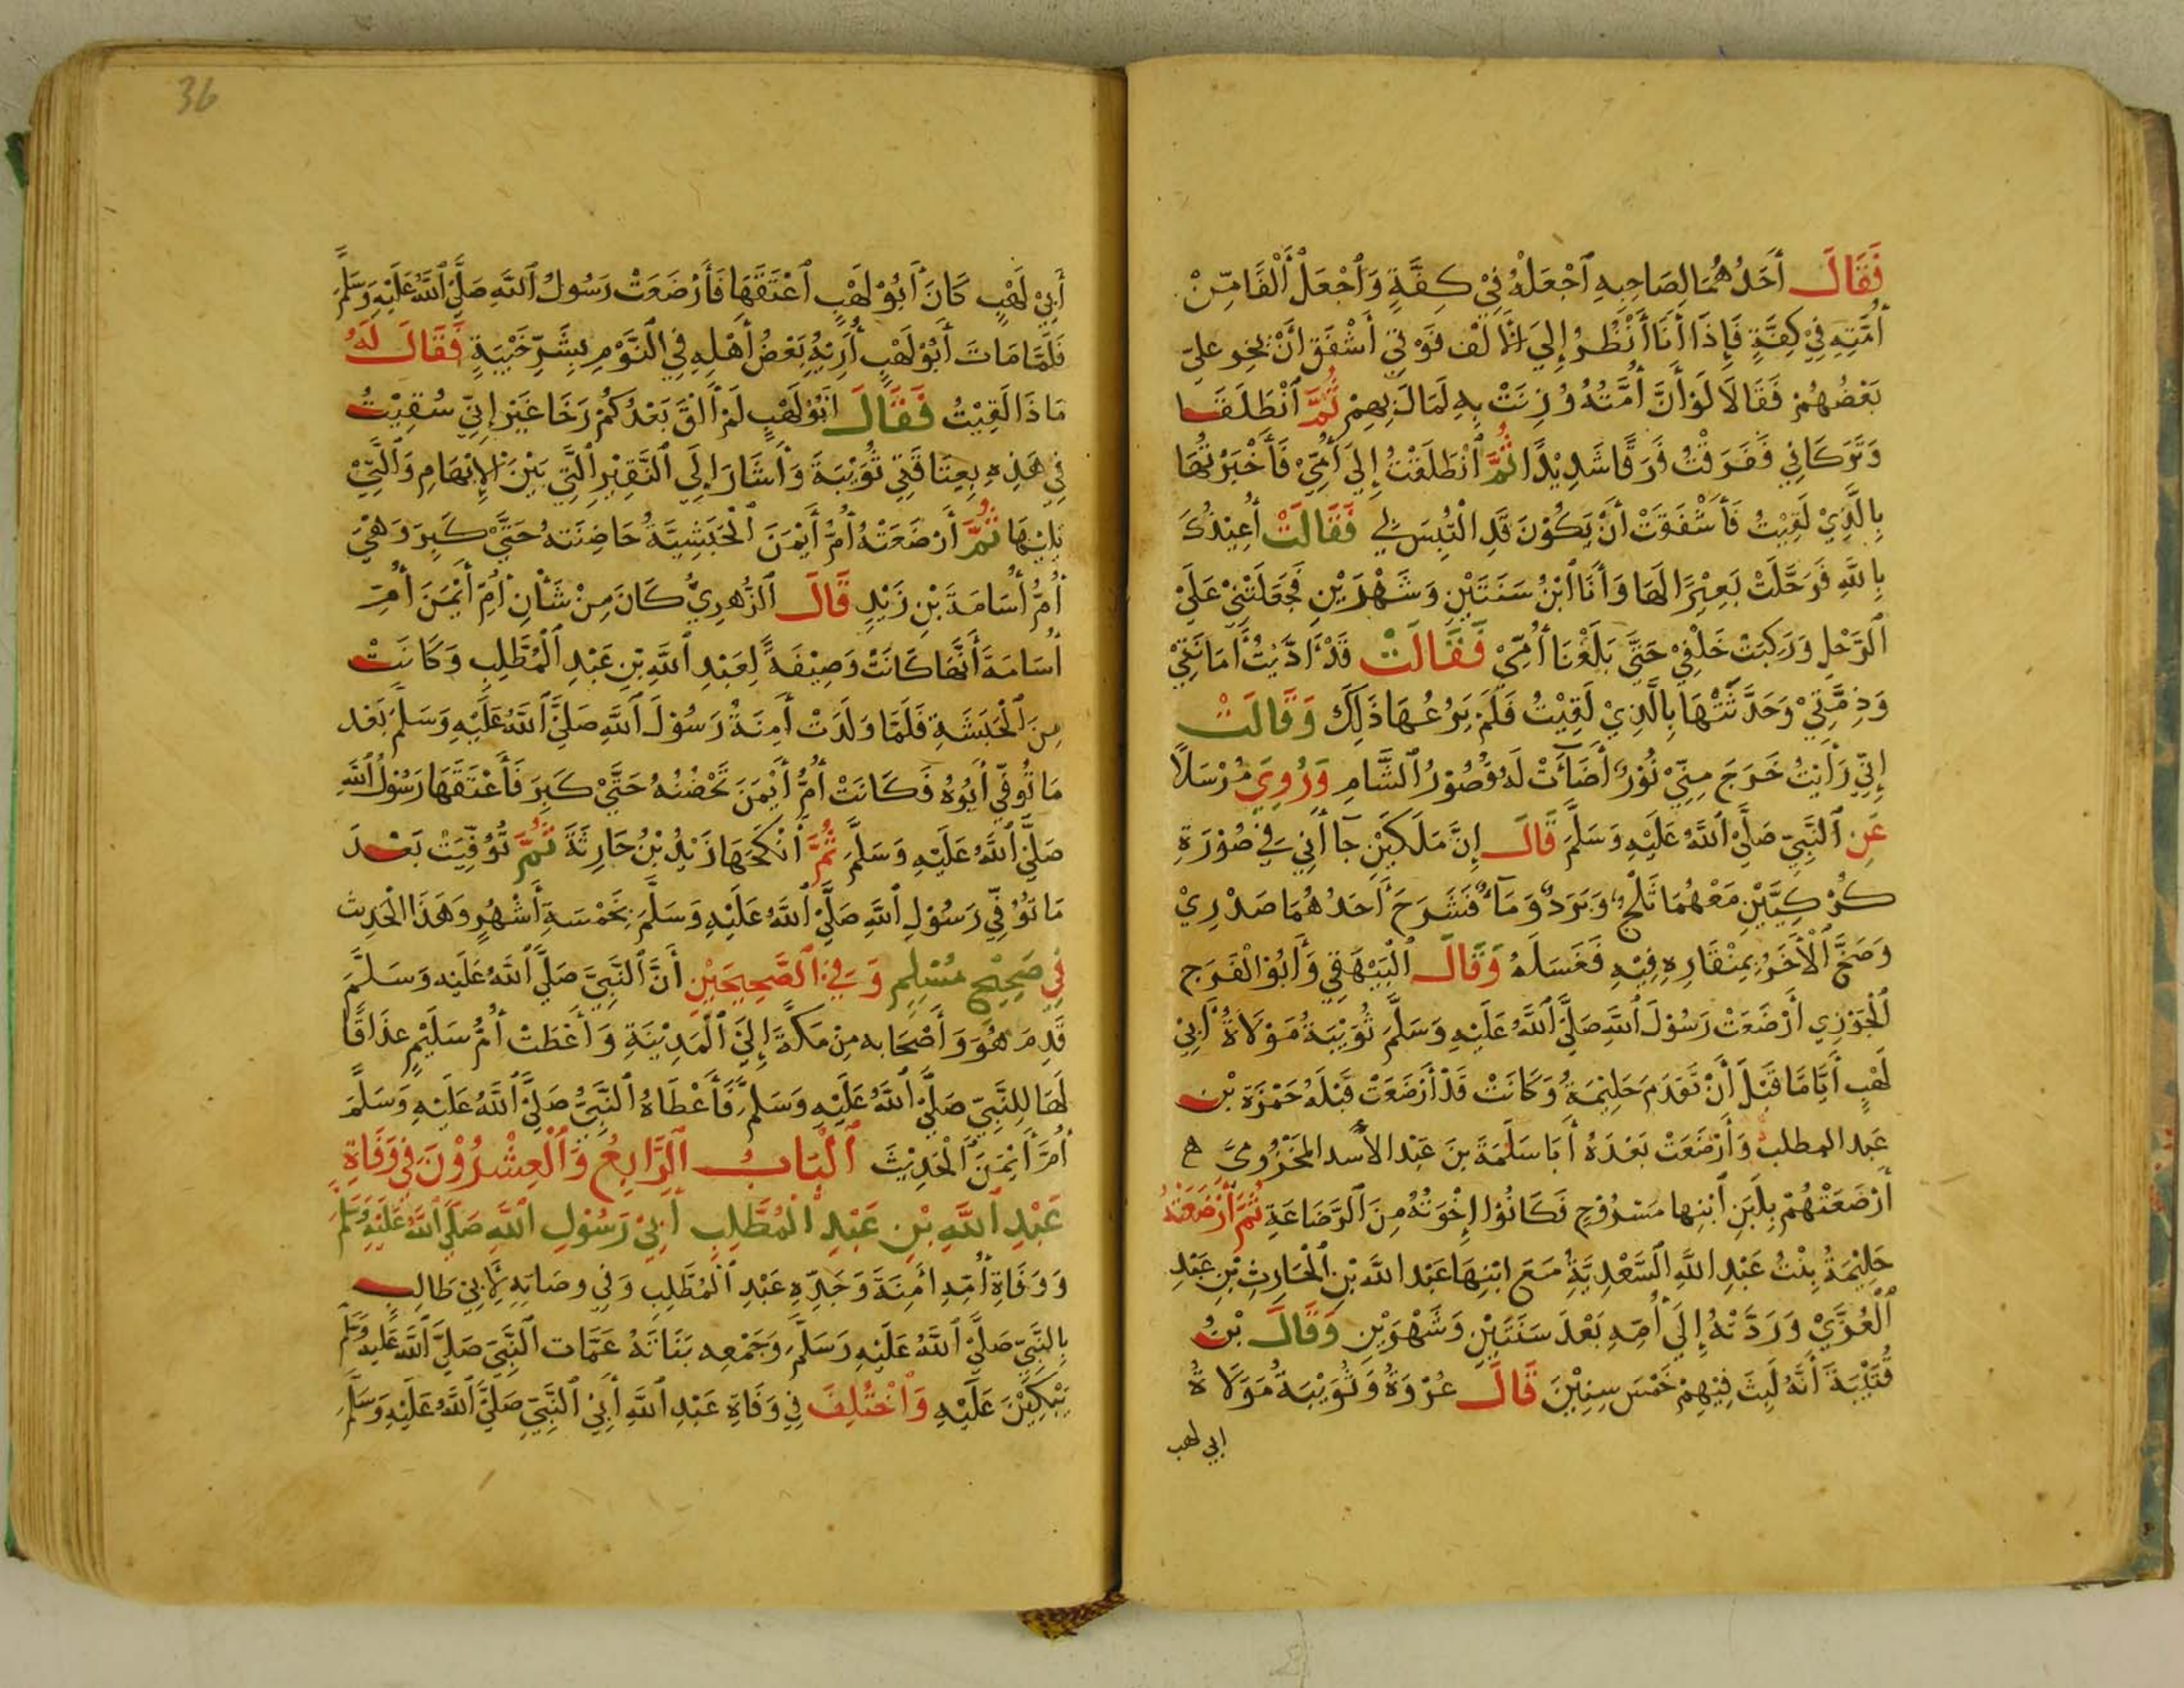 فَقَالَ أَحَدُهُمَا لِصَاحِبِهِ ٱجْعَلْهُ فِيْ كِفَّةٍ وَٱجْعَلْ أَلْفًا مِّنْ
أُمَّتِهِ فِيْ كِفَّةٍ فَإِذَا أَنَا أَنْظُرُ إِلَي الْأَلْف فَوْقِيْ أَشْفَقُ أَنْ يَخِرَّ عَلَيّ
بَعْضُهُمْ فَقَالَا لَوْ أَنَّ أُمَّتَهُ وُزِنَتْ بِهِ لَمَالَ بِهِمْ ثُمَّ ٱنْطَلَقَا
وَتَرَكَانِيْ فَفَرَقْتُ فَرَقًا شَدِيْدًا ثُمَّ ٱنْطَلَقْتُ إِلَي أُمِّيْ فَأَخْبَرْتُهَا
بِالَّذِيْ لَقِيْتُ فَأَشْفَقَتْ أَنْ يَكُوْنَ قَدِ الْتُبِسَ لِي فَقَالَتْ أُعِيْذُكَ
بِاللَّهِ فَرَحَّلَتْ بَعِيْرًا لَهَا وَأَنَا ٱبْنُ سَنَتَيْنِ وَشَهْرَيْنِ فَجَعَلَتْنِيْ عَلَيْ
ٱلرَّحْلِ وَرَكِبَتْ خَلْفِيْ حَتَّي بَلَغْنَا أُمِّيْ فَقَالَتْ قَدْ أَدَّيْتُ أَمَانَتِيْ
وَذِمَّتِيْ وَحَدَّثَتْهَا بِالَّذِيْ لَقِيْتُ فَلَمْ يَرُعْهَا ذَلِكَ وَقَالَتْ
إِنِّي رَأَيْتُ خَرَجَ مِنِّيْ نُوْرٌ أَضَآءَتْ لَهُ قُصُوْرُ ٱلشَّامِ وَرُوِيَ مُرْسَلًا
عَنِ ٱلنَّبِيِّ صَلَّيْ ٱللَّهُ عَلَيْهِ وَسَلَّمَ قَالَ إِنَّ مَلَكَيْنِ جَاآنِي فِيْ صُوْرَةِ
كُرْكِيَّيْنِ مَعْهُمَا ثَلْجٌ وَبَرَدٌ وَمَآءٌ فَشَرَحَ أَحَدُهُمَا صَدْرِيْ
وَضَخَّ ٱلْأَخَرُ بِمِنْقَارِهِ فِيْهِ فَغَسَلَهُ وَقَالَ ٱلْبَيْهَقِي وَأَبُوْ الْفَرَج
ٱلْجَوْزِي أَرْضَعَتْ رَسُوْلَ ٱللَّهِ صَلَّيْ ٱللَّهُ عَلَيْهِ وَسَلَّمَ ثُوَيْبَةُ مَوْلَاةُ أَبِيْ
لَهْبٍ أَيَّامًا قَبْلَ أَنْ تَقْدَمَ حَلِيْمَةُ وَكَانَتْ قَدْ أَرْضَعَتْ قَبْلَهُ حَمْزَةَ بْن
عَبد المطلب وَأَرْضَعَتْ بَعْدَهُ أَبَا سَلَمَةَ بنَ عَبْد الأسد المَخْزُوميَّ
أَرْضَعَتْهُمْ بِلَبَنِ ٱبْنِها مَسْرُوْحٍ فَكَانُوْا إِخْوَتُهُ مِنَ ٱلرَّضَاعَةِ ثُمَّ أَرْضَعَتْهُ
حَلِيْمَةُ بِنْتُ عَبْدِ اللَّهِ السَّعْدِيَّةُ مَعَ ابْنِهَا عَبْد اللَّهِ بْنِ ٱلْحَارِثِ بْنِ عَبْدِ
ٱلْعُزَّيْ وَرَدَّتْهُ إِلَي أُمِّهِ بَعْدَ سَنَتَيْنِ وَشَهْرَيْنِ وَقَالَ بْنُ
قُتَيْبَةَ أَنَّهُ لَبِثَ فِيْهِمْ خَمْسَ سِنِيْنَ قَالَ عُرْوَةُ وَثُوَيْبَةُ مَوَلَاةُ
ابي لهب
36
أَبِيْ لَهْبٍ كَانَ أَبُوْ لَهْبٍ ٱعْتَقَهَا فَأَرْضَعَتْ رَسُولُ ٱللَّهِ صَلَّيْ ٱللَّهُ عَلَيْهِ وَسَلَّمَ
فَلَمَّا مَاتَ أَبُوْ لَهْبٍ أُرِيْهُ بَعْضُ أَهْلِهِ فِي ٱلنَّوْمِ بِشَرِّ خَيْبَةٍ فَقَالَ لَهُ
مَاذَا لَقِيْتُ فَقَالَ ابُوْ لَهْبٍ لَمْ أَلْقَ بَعْدَكُمْ رَخَا غَيْرَ إِنِّي سُقِيْتُ
فِي هَذِهِ بِعِتَاقَتِي ثُوَيْبَةَ وَأَشَارَ إِلَي ٱلنَّقِيْرِ ٱلَّتِي بَيْنَ الإِبْهَامِ وَٱلَّتِيْ
تَلِيْهَا ثُمَّ أَرْضَعَتْهُ أُمُّ أَيْمَنَ ٱلْحَبَشِيَّةُ حَاضِنَتهُ حَتَّيْ كَبِرَ وَهْيَ
أُمُّ أُسَامَةَ بْنِ زَيْدٍ قَالَ ٱلزُّهرِيُّ كَانَ مِنْ شَأْنِ أُمِّ أَيْمَنَ أُمِّ
أُسَامَةَ أَنَّهَا كَانَتْ وَصِيْفَةً لِعَبْدِ ٱللَّهِ بْنِ عَبْدِ ٱلْمُطَّلِبِ وَكَانَتْ
مِنَ ٱلْحَبَشَةِ فَلَمَّا وَلَدَتْ أَمِنَةُ رَسُوْلَ ٱللَّهِ صَلَّيْ ٱللَّهُ عَلَيْهِ وَسَلَّمَ بَعْد
مَا تُوفِّي أَبُوهُ فَكَانَتْ أُمُّ أَيْمَنَ تَحْضُنُهُ حَتَّيْ كَبِرَ فَأَعْتَقَهَا رَسُوْلُ ٱللَّهِ
صَلَّيْ ٱللَّهُ عَلَيْهِ وَسَلَّمَ ثُمَّ أَنْكَحَهَا زَيْدُ بْنُ حَارِثَةَ ثُمَّ تُوُفِّيَتْ بَعْدَ
مَا تُوُفِّي رَسُوْلِ ٱللَّهِ صَلَّيْ ٱللَّهُ عَلَيْهِ وَسَلَّمَ بِخَمْسَةِ أَشْهُرٍ وَهَذَا الْحَدِيث
فِيْ صَحِيْحِ مُسْلِمٍ وَفِيْ ٱلصَّحِيْحَيْنِ أَنَّ ٱلنَّبِيَّ صَلَّي ٱللَّهُ عَلَيْهِ وَسَلَّمَ
قَدِمَ هُوَ وَأَصْحَابه مِنْ مَكَّةَ إِلَيْ ٱلْمَدِيْنَةِ وَأَعْطَتْ أُمُّ سَلَيْمٍ عِذَاقًا
لَهَا لِلنَّبِيِّ صَلَّيْ ٱللَّهُ عَلَيْهِ وَسَلَّمَ فَأَعْطَاهُ ٱلنَّبِيُّ صَلَّيْ ٱللَّهُ عَلَيْهِ وَسَلَّمَ
أُمَّ أَيْمَنَ ٱلْحَدِيْثَ ٱلْبَابُ ٱلرَّابِعُ وَٱلْعِشْرُوْنَ فِي وَفَاةِ
عَبْدِ ٱللَّهِ بْنِ عَبْدِ ٱلْمُطَّلِبِ أَبِيْ رَسُوْلِ ٱللَّهِ صَلَّيْ ٱللَّهُ عَلَيْهِ وَسَلَّمَ
وَوَفَاةِ أُمِّهِ أَمِنَةَ وَجَدِّهِ عَبْدِ ٱلْمُطَّلِبِ وَفِي وصَاتِهِ لِأَبِيْ طَالِبٍ
بِالنَّبِيِّ صَلَّيْ ٱللَّهُ عَلَيْهِ وَسَلَّمَ وَجَمْعِهِ بَنَاتَهُ عَمَّات ٱلنَّبِيِّ صَلَّيْ ٱللَّهُ عَلَيْهِ وَسَلَّمَ
يَبْكِيْنَ عَلَيْهِ وَٱخْتُلِفَ فِي وَفَاةِ عَبْدِ ٱللَّهِ أَبِيْ ٱلنَّبِيِّ صَلَّيْ ٱللَّهُ عَلَيْهِ وَسَلَّمَ